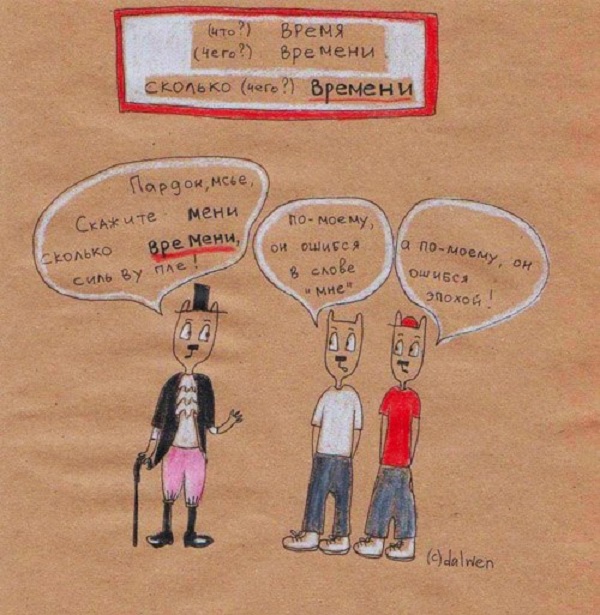 (что?) время
(чего?) времени
сколько (чего?) времени
Пардон, мсье,
Скажите мени
сколько времени,
силь ву пле!
по-моему,
он ошибся
в слове
"мне"
а по-моему, он
ошибся
эпохой!
(c)dalwen